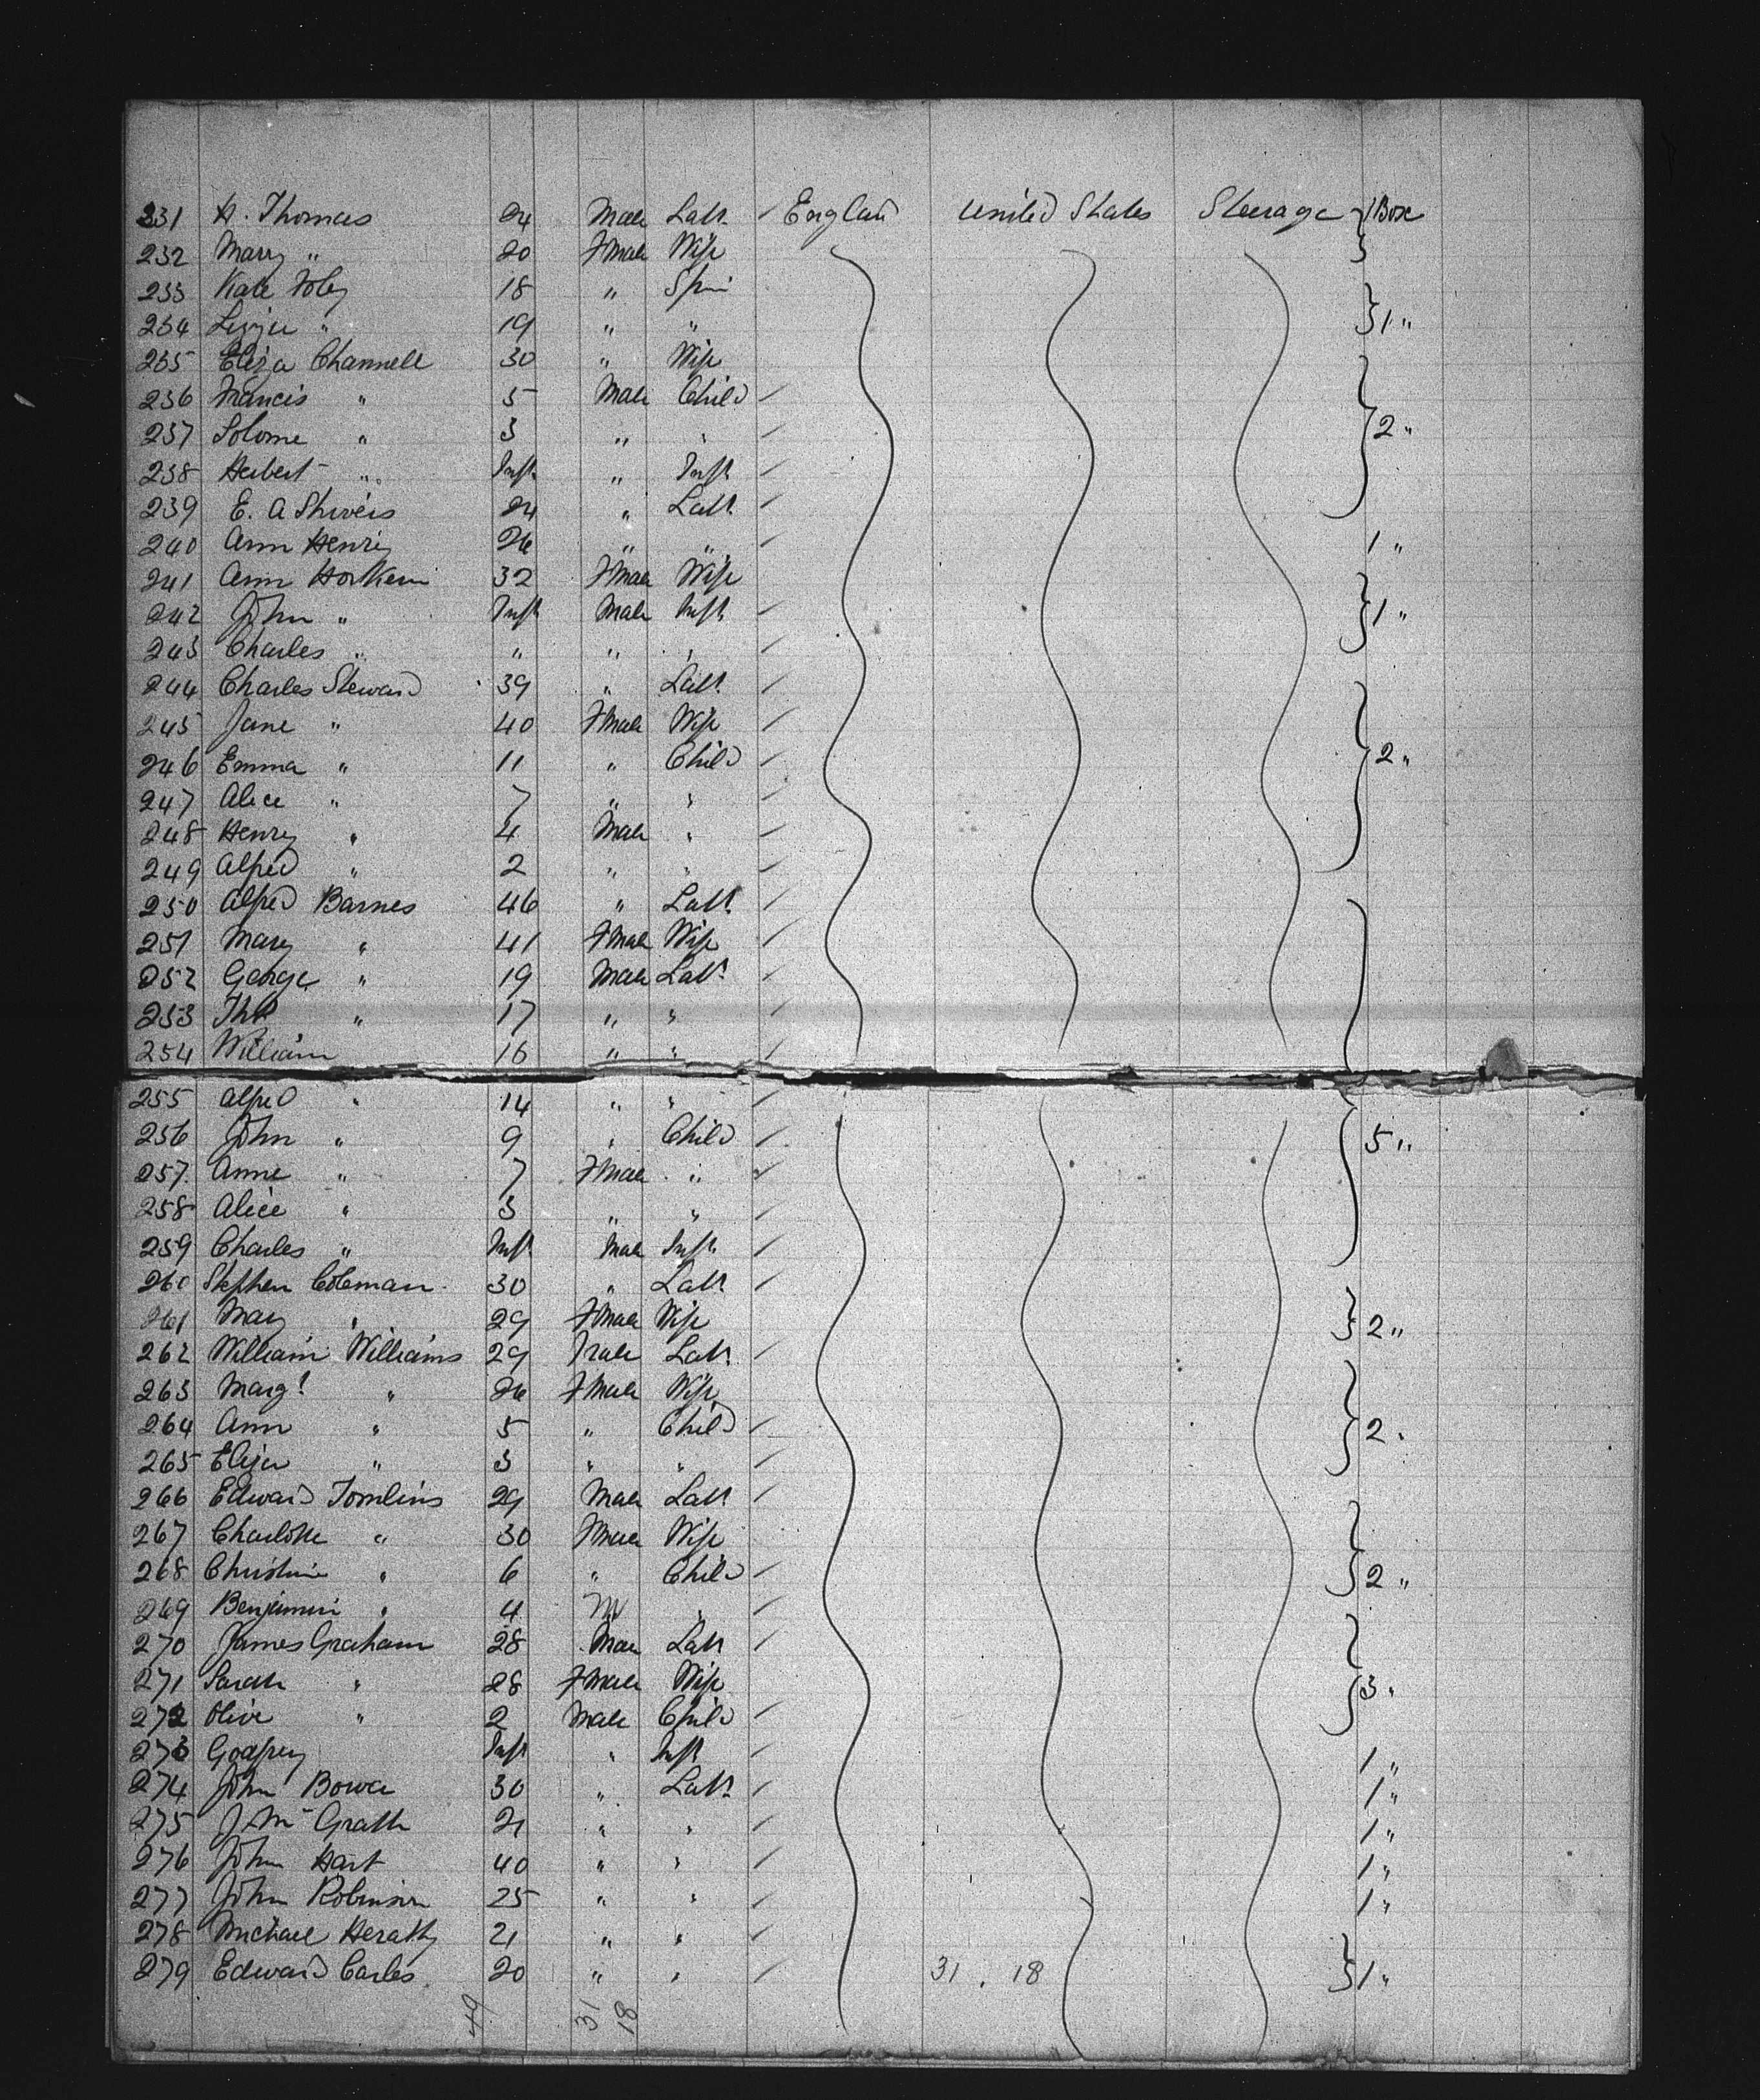 231 H. Thomas 24 Male Labr England United States Steerage 1 Box
232 Mary " 20 Fmale Wife
233 Kate Foley 18 " Spin
234 Lizzie " 19 " " 1 "
235 Eliza Channell 30 " Wife
236 Francis " 5 Male Child
237 Solome " 3 " " 2 "
238 Herbert " Inft " Inft
239 E. A Shivers 24 " Labr
240 Ann Henry 26 " " 1 "
241 Ann 32 Fmale Wife
242 John " Inft Male Inft 1 "
243 Charles " " " "
244 Charles Steward 39 " Labr
245 Jane " 40 Fmale Wife
246 Emma " 11 " Child 2 "
247 Alice " 7 " "
248 Henry " 4 Male "
249 Alfred " 2 " "
250 Alfred Barnes 46 " Labr
251 Mary " 41 Fmale Wife
252 George " 19 Male Labr
253 " 17 " "
254 William 16 " "
255 Alfred " 14 " "
256 John " 9 " Child 5 "
257 Anne " 7 Fmale "
258 Alice " 3 " "
259 Charles " Inft Male Inft
260 Stephen Coleman 30 " Labr
261 Mary " 29 Fmale Wife 2 "
262 William Williams 29 Male Labr
263 Margt " 26 Fmale Wife
264 Ann " 5 " Child 2 "
265 Eliza " 3 " "
266 Edward Tomlins 29 Male Labr
267 Charlotte " 30 Fmale Wife
268 Christine " 6 " Child 2 "
269 Benjamin " 4 M "
270 James Graham 28 Male Labr
271 Sarah " 28 Fmale Wife 3 "
272 Olive " 2 Male Child
273 Godfrey Inft " Inft 1 "
274 John Bower 30 " Labr 1 "
275 J. McGrath 21 " " 1 "
276 John Hart 40 " " 1 "
277 John Robinson 25 " " 1 "
278 Michael Herathy 21 " "
279 Edward Carles 20 " " 31 . 18 1 "
49 31 18